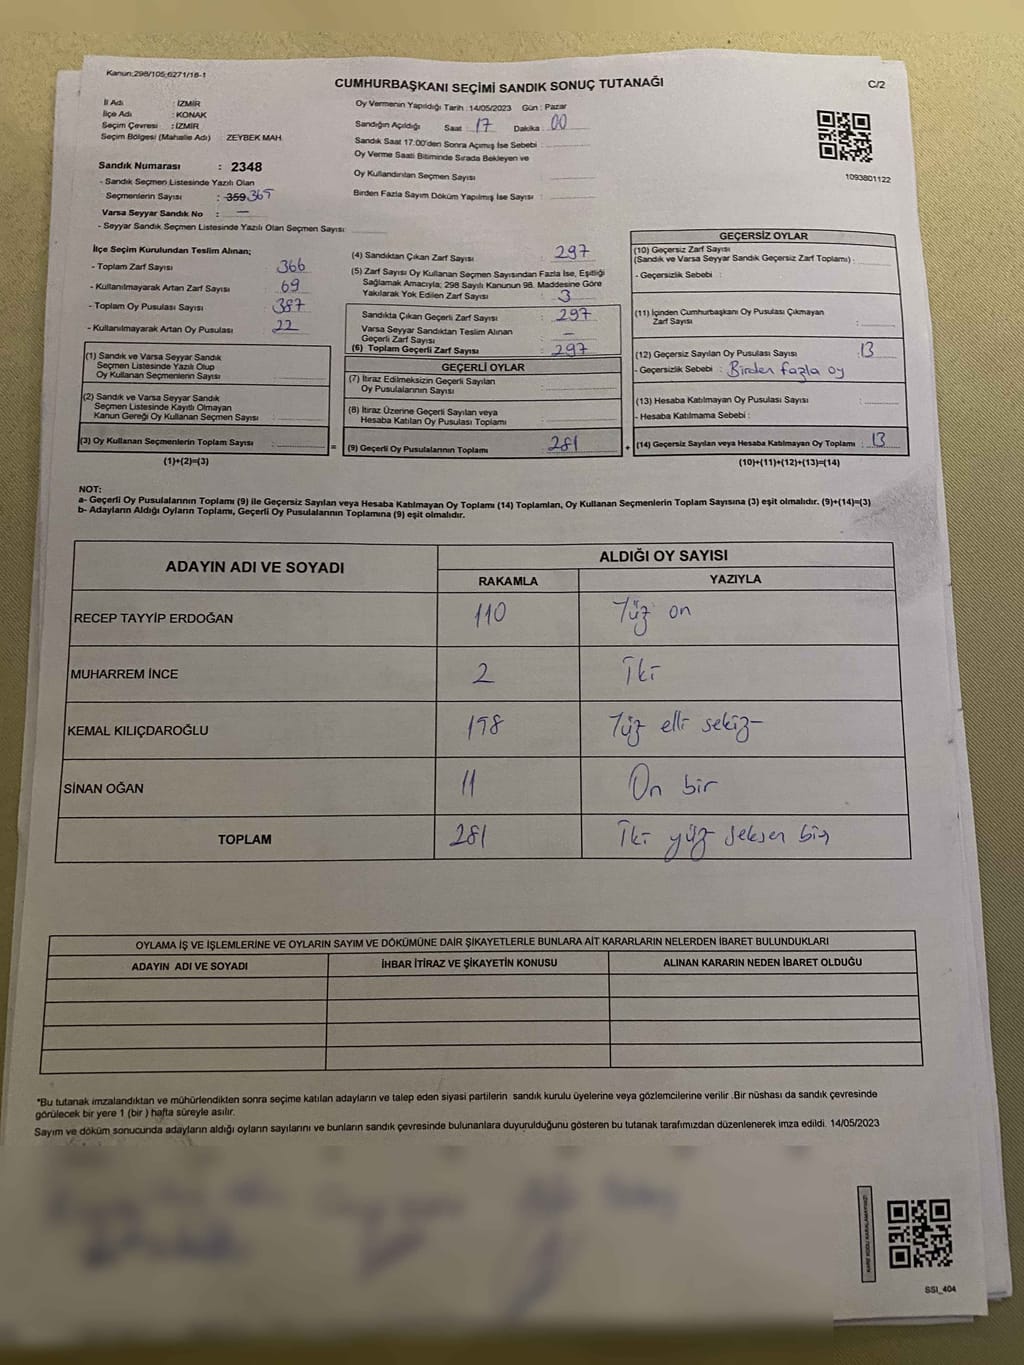 Kanun:298/105;6271/18-1
CUMHURBAŞKANI SEÇİMİ SANDIK SONUÇ TUTANAĞI
C/2
İl Adı : İZMİR
İlçe Adı : KONAK
Seçim Çevresi : İZMİR
Seçim Bölgesi (Mahalle Adı) : ZEYBEK MAH.
Oy Vermenin Yapıldığı Tarih : 14/05/2023 Gün : Pazar
Sandığın Açıldığı Saat 17 Dakika 00
Sandık Saat 17.00'den Sonra Açılmış İse Sebebi :
Oy Verme Saati Bitiminde Sırada Bekleyen ve
Oy Kullandırılan Seçmen Sayısı :
Birden Fazla Sayım Döküm Yapılmış İse Sayısı :
1093801122
Sandık Numarası : 2348
- Sandık Seçmen Listesinde Yazılı Olan
Seçmenlerin Sayısı : 359 365
Varsa Seyyar Sandık No : —
- Seyyar Sandık Seçmen Listesinde Yazılı Olan Seçmen Sayısı:
İlçe Seçim Kurulundan Teslim Alınan;
- Toplam Zarf Sayısı : 366
- Kullanılmayarak Artan Zarf Sayısı : 69
- Toplam Oy Pusulası Sayısı : 387
- Kullanılmayarak Artan Oy Pusulası : 22
(1) Sandık ve Varsa Seyyar Sandık
Seçmen Listesinde Yazılı Olup
Oy Kullanan Seçmenlerin Sayısı :
(2) Sandık ve Varsa Seyyar Sandık
Seçmen Listesinde Kayıtlı Olmayan
Kanun Gereği Oy Kullanan Seçmen Sayısı :
(3) Oy Kullanan Seçmenlerin Toplam Sayısı :
=
(1)+(2)=(3)
(4) Sandıktan Çıkan Zarf Sayısı : 297
(5) Zarf Sayısı Oy Kullanan Seçmen Sayısından Fazla İse, Eşitliği
Sağlamak Amacıyla, 298 Sayılı Kanunun 98. Maddesine Göre
Yakılarak Yok Edilen Zarf Sayısı : 3
Sandıkta Çıkan Geçerli Zarf Sayısı : 297
Varsa Seyyar Sandıktan Teslim Alınan
Geçerli Zarf Sayısı : —
(6) Toplam Geçerli Zarf Sayısı : 297
GEÇERLİ OYLAR
(7) İtiraz Edilmeksizin Geçerli Sayılan
Oy Pusulalarının Sayısı :
(8) İtiraz Üzerine Geçerli Sayılan veya
Hesaba Katılan Oy Pusulası Toplamı :
(9) Geçerli Oy Pusulalarının Toplamı : 281
+
GEÇERSİZ OYLAR
(10) Geçersiz Zarf Sayısı
(Sandık ve Varsa Seyyar Sandık Geçersiz Zarf Toplamı) :
- Geçersizlik Sebebi :
(11) İçinden Cumhurbaşkanı Oy Pusulası Çıkmayan
Zarf Sayısı :
(12) Geçersiz Sayılan Oy Pusulası Sayısı : 13
- Geçersizlik Sebebi : Birden fazla oy
(13) Hesaba Katılmayan Oy Pusulası Sayısı :
- Hesaba Katılmama Sebebi :
(14) Geçersiz Sayılan veya Hesaba Katılmayan Oy Toplamı : 13
(10)+(11)+(12)+(13)=(14)
NOT:
a- Geçerli Oy Pusulalarının Toplamı (9) ile Geçersiz Sayılan veya Hesaba Katılmayan Oy Toplamı (14) Toplamları, Oy Kullanan Seçmenlerin Toplam Sayısına (3) eşit olmalıdır. (9)+(14)=(3)
b- Adayların Aldığı Oyların Toplamı, Geçerli Oy Pusulalarının Toplamına (9) eşit olmalıdır.
ADAYIN ADI VE SOYADI
ALDIĞI OY SAYISI
RAKAMLA YAZIYLA
RECEP TAYYİP ERDOĞAN 110 Yüz on
MUHARREM İNCE 2 İki
KEMAL KILIÇDAROĞLU 158 Yüz elli sekiz
SİNAN OĞAN 11 On bir
TOPLAM 281 İki yüz seksen bir
OYLAMA İŞ VE İŞLEMLERİNE VE OYLARIN SAYIM VE DÖKÜMÜNE DAİR ŞİKAYETLERLE BUNLARA AİT KARARLARIN NELERDEN İBARET BULUNDUKLARI
ADAYIN ADI VE SOYADI İHBAR İTİRAZ VE ŞİKAYETİN KONUSU ALINAN KARARIN NEDEN İBARET OLDUĞU
*Bu tutanak imzalandıktan ve mühürlendikten sonra seçime katılan adayların ve talep eden siyasi partilerin sandık kurulu üyelerine veya gözlemcilerine verilir .Bir nüshası da sandık çevresinde
görülecek bir yere 1 (bir ) hafta süreyle asılır.
Sayım ve döküm sonucunda adayların aldığı oyların sayılarını ve bunların sandık çevresinde bulunanlara duyurulduğunu gösteren bu tutanak tarafımızdan düzenlenerek imza edildi. 14/05/2023
SSI_404